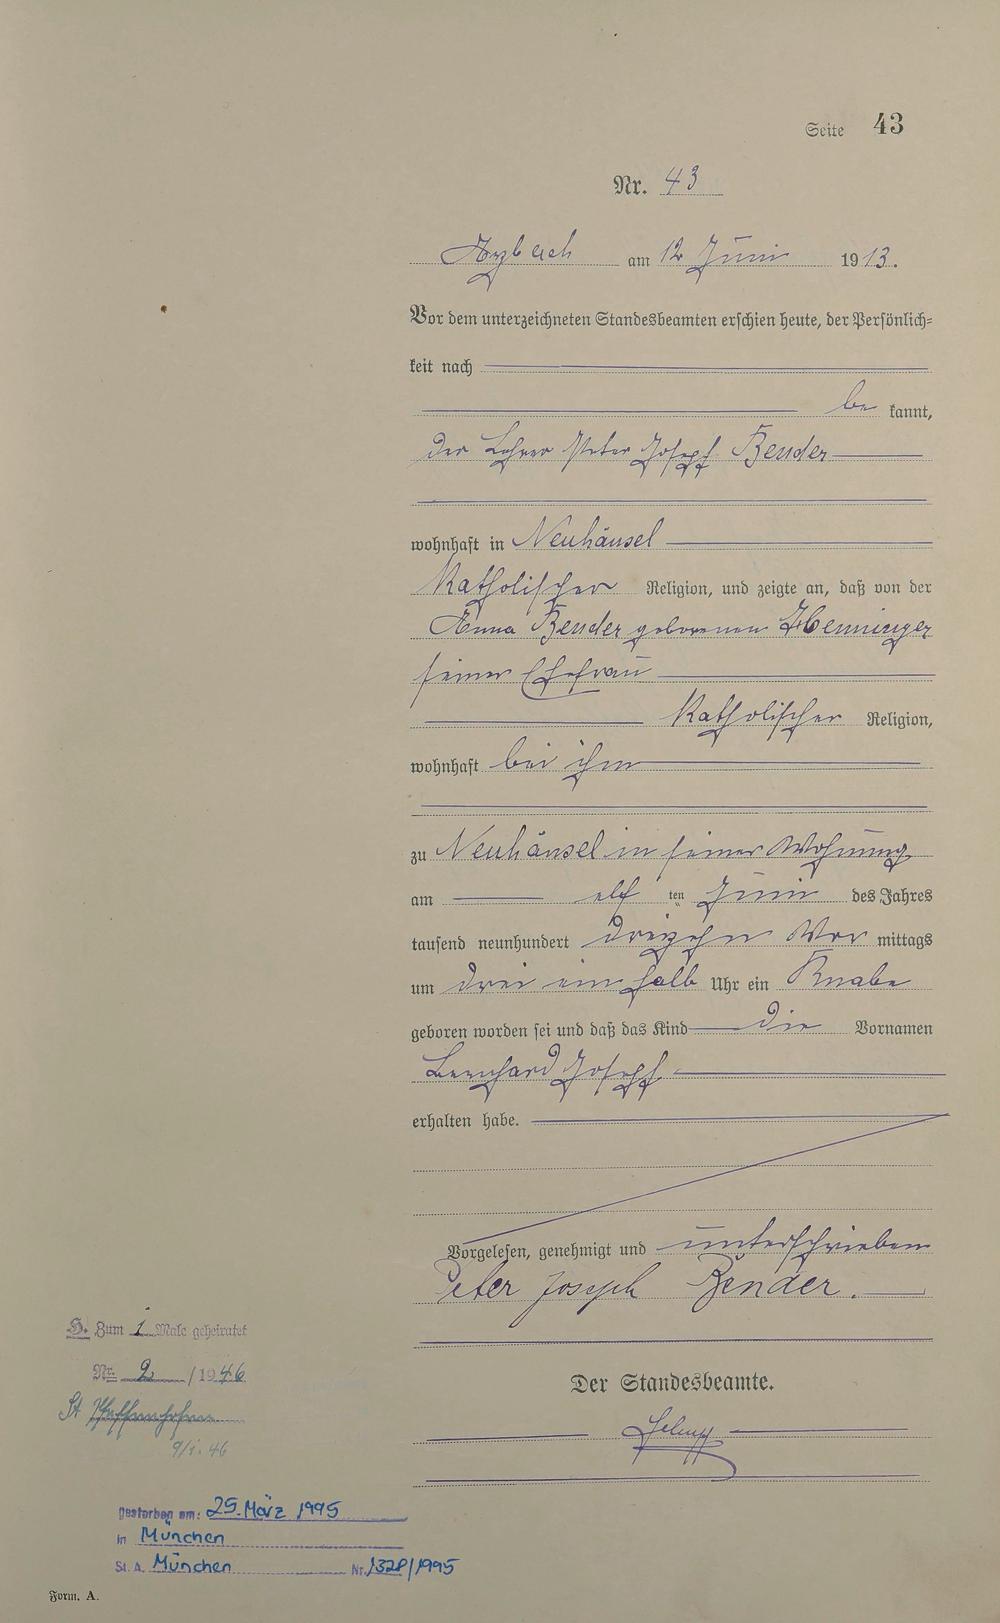 Seite 43
Nr. 43
Arzbach am 12 Juni 1913.
Vor dem unterzeichneten Standesbeamten erschien heute, der Persönlich=
keit nach
be kannt,
der Lehrer Peter Josepf Bender
wohnhaft in Neuhäusel
Katholischer Religion, und zeigte an, daß von der
Anna Bender geborenen Henninger
seiner Ehefrau
Katholischer Religion,
wohnhaft bei ihm
zu Neuhäusel in seiner Wohnung
am elf ten Juni des Jahres
tausend neunhundert dreizehn Vor mittags
um drei ein halb Uhr ein Knabe
geboren worden sei und daß das Kind die Vornamen
Bernhard Josepf
erhalten habe.
Vorgelesen, genehmigt und unterschrieben
Peter Joseph Bender.
Der Standesbeamte.
H. Zum 1 Male geheiratet
Nr. 2 /1946
St Pfaffenhofen
9/1. 46
Gestorben am: 25. März 1995
in München
St. A. München Nr. 1328/1995
Form. A.